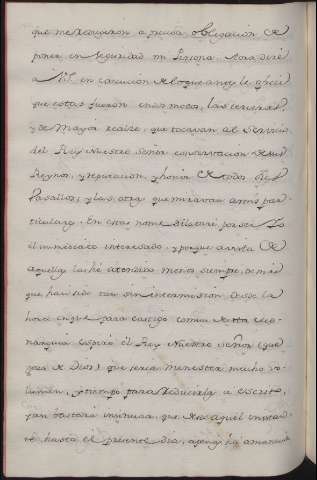 que me reduxeron a precisa obligacion de
poner en seguridad mi Persona. Aora diré
a V.M. en execucion de lo que antes le ofreci
que estas fueron en dos modos, las generales,
y de mayor realze, que tocavan al servicio
del Rey Nuestro Señor conservacion de sus
Reynos, y reparacion, y honra de todos sus
Vasallos, y las otras que miravan a mis par-
ticulares. En estas no me dilataré por ser Yo
el inmediato interesado, y porque a vista de
aquellas las hé atendido menos siempre, demás
que han sido tan sin intermission desde la
hora en que para castigo comun de esta Mo-
narquia espiró el Rey Nuestro Señor (que
goza de Dios) que seria menester mucho vo-
lumen, y tiempo para reducirlas a escrito,
y an bastará insinuar, que desde aquel instan-
te hasta el presente dia, apenas ha amanecido